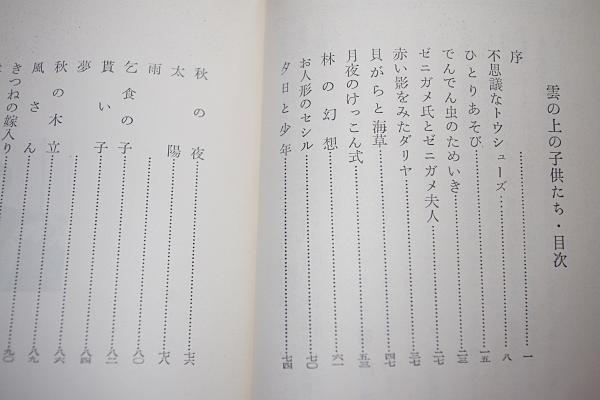 雲の上の子供たち・目次
序……一
不思議なトウシューズ……八
ひとりあそび……一五
でんでん虫のためいき……二三
ゼニガメ氏とゼニガメ夫人……二七
赤い影をみたダリヤ……三七
貝がらと海草……四七
月夜のけっこん式……五三
林の幻想……六一
お人形のセシル……七〇
夕日と少年……七四
秋の夜……七六
太陽……七八
雨……八〇
乞食の子……八二
貰い子……八四
夢……八六
秋の木立
風さん……八九
きつねの嫁入り……九〇